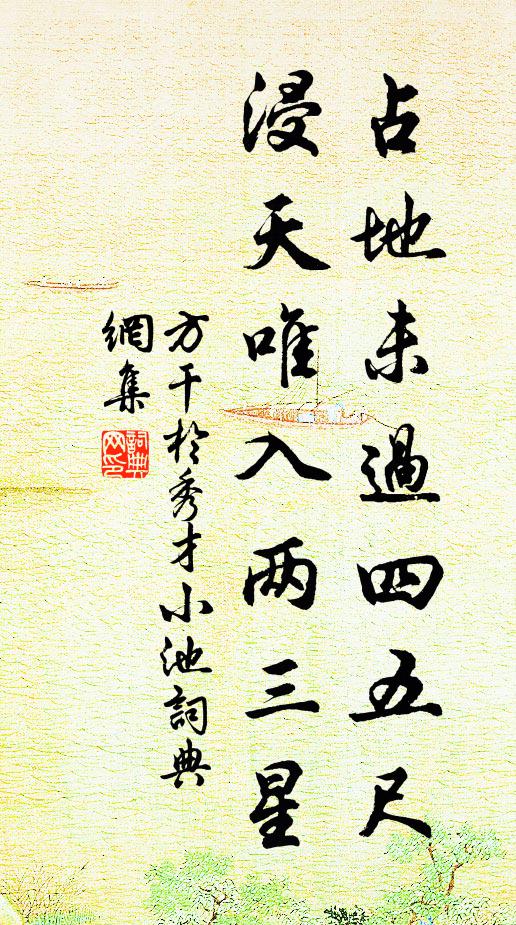 占地未過四五尺
浸天唯入两三星
方干於秀才小池詞典
網集
詞典
网印